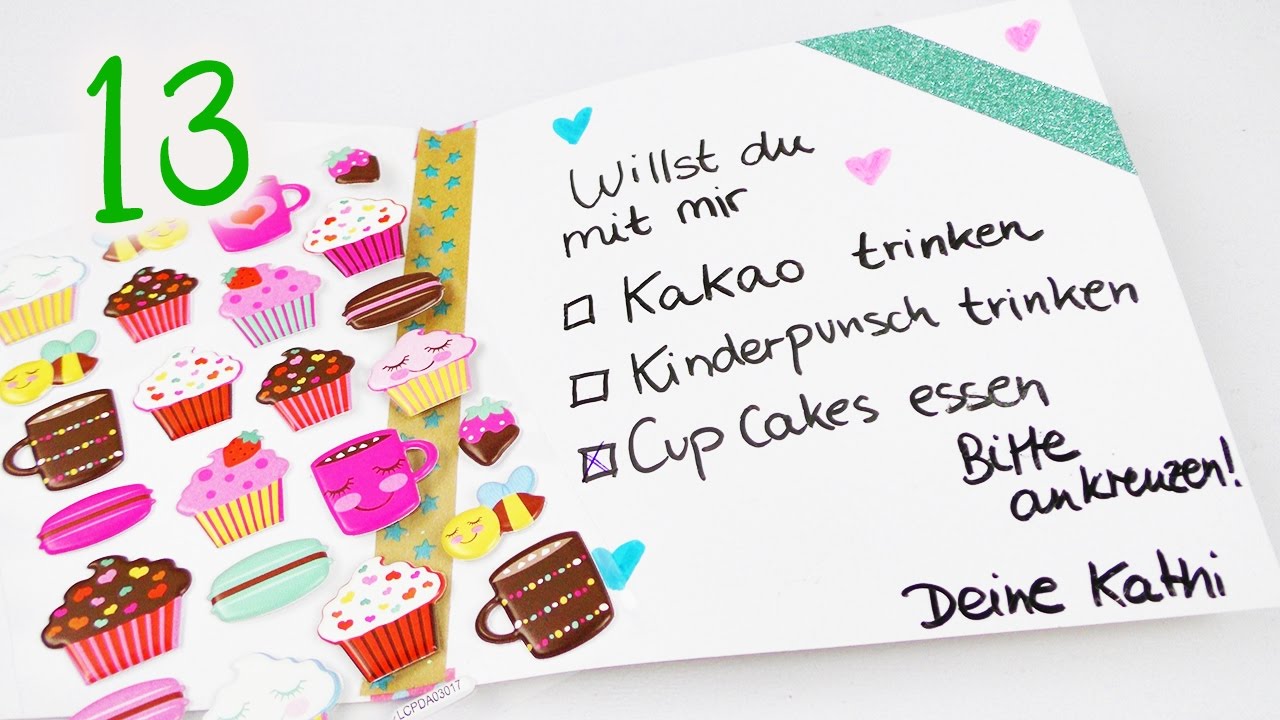 13
Willst du
mit mir
Kakao trinken
Kinderpunsch trinken
Cup Cakes essen
Bitte
ankreuzen!
Deine Kathi
LCPDA03017